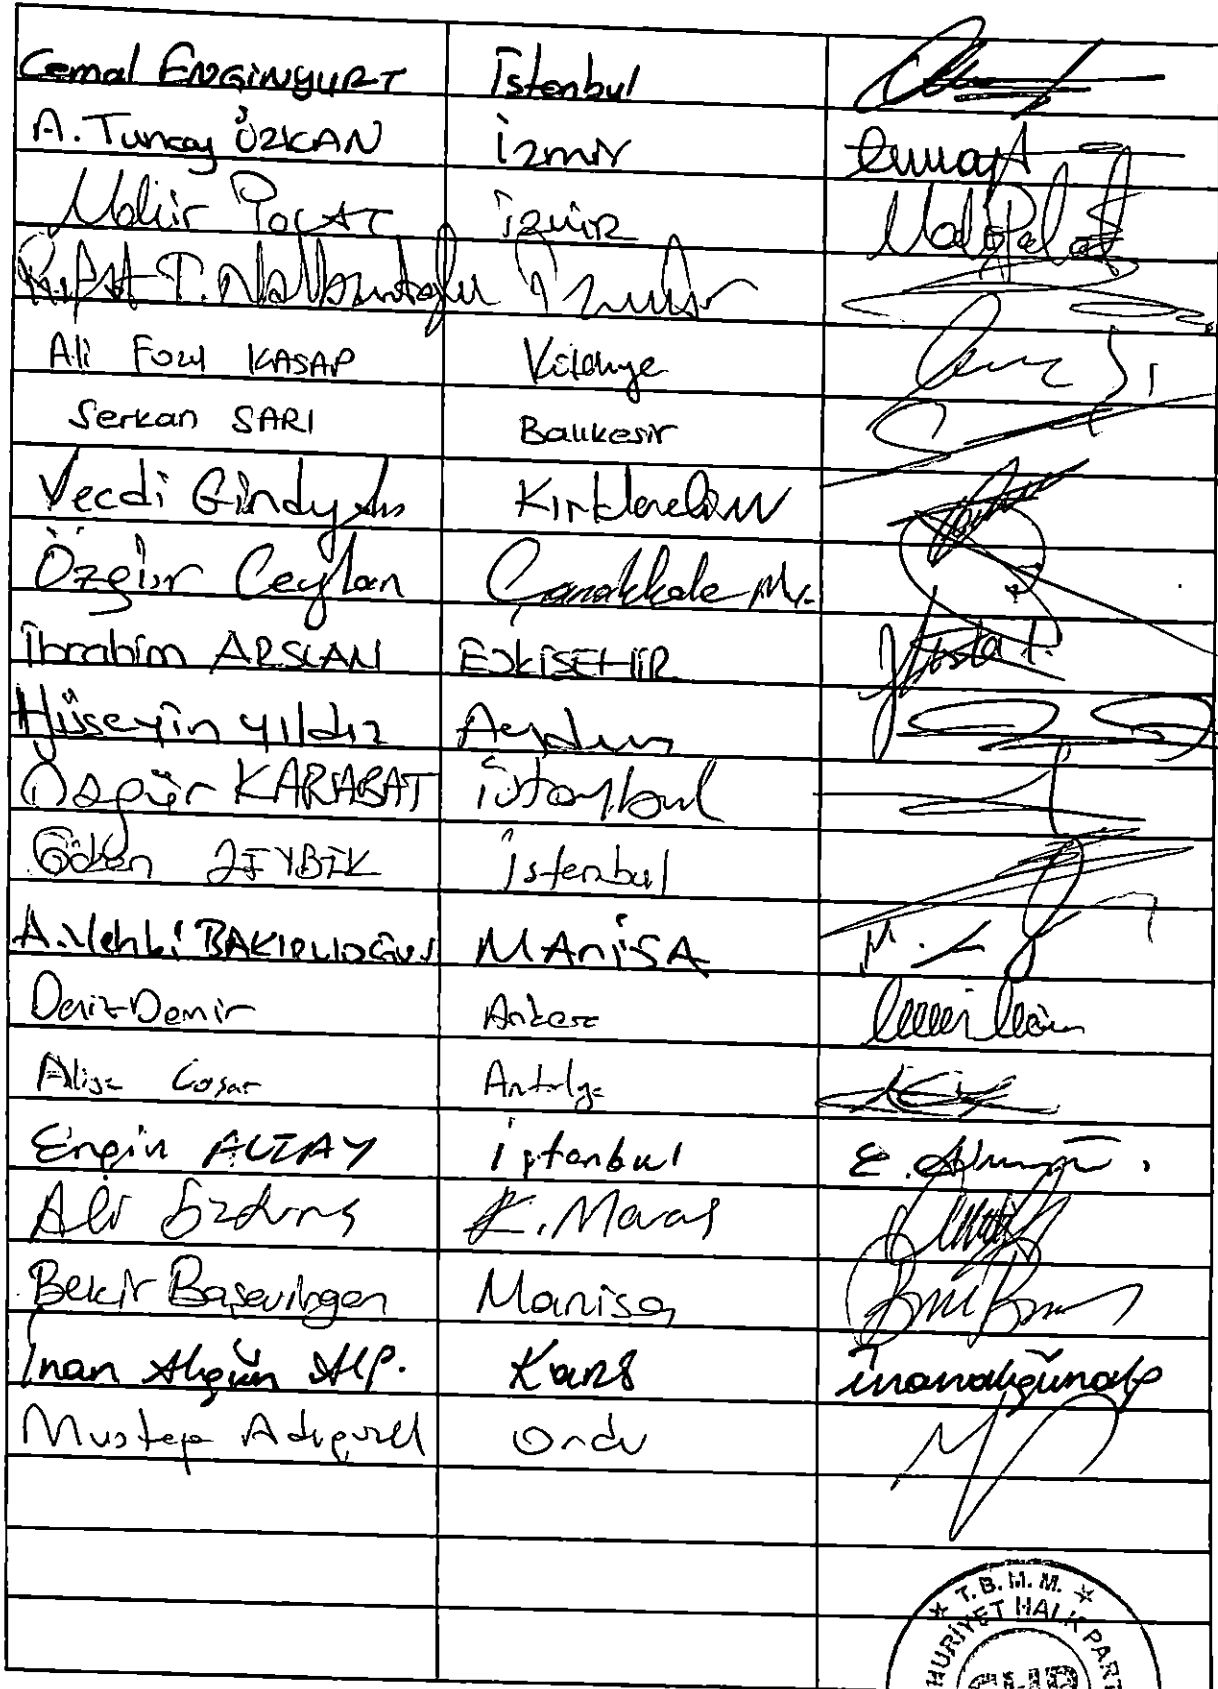 Cemal ENGİNYURT İstanbul
A. Tuncay ÖZKAN İzmir
Mahir POLAT İzmir
Rıfat T. Nalbantoğlu İzmir
Ali Fazıl KASAP Kütahya
Serkan SARI Balıkesir
Vecdi Gündoğdu Kırklareli
Özgür Ceylan Çanakkale Mv.
İbrahim ARSLAN ESKİŞEHİR
Hüseyin Yıldız Aydın
Özgür KARABAT İstanbul
Gökan ZEYBEK İstanbul
A. Vehbi BAKIRLIOĞLU MANİSA
Deniz Demir Ankara
Aliye Coşar Antalya
Engin ALTAY İstanbul E. Altay
Ali Öztunç K. Maraş
Bekir Başevirgen Manisa
İnan Akgün Alp. Kars inanakgünalp
Mustafa Adıgüzel Ordu
T. B. M. M.
HURİYET HALK PART
CHP